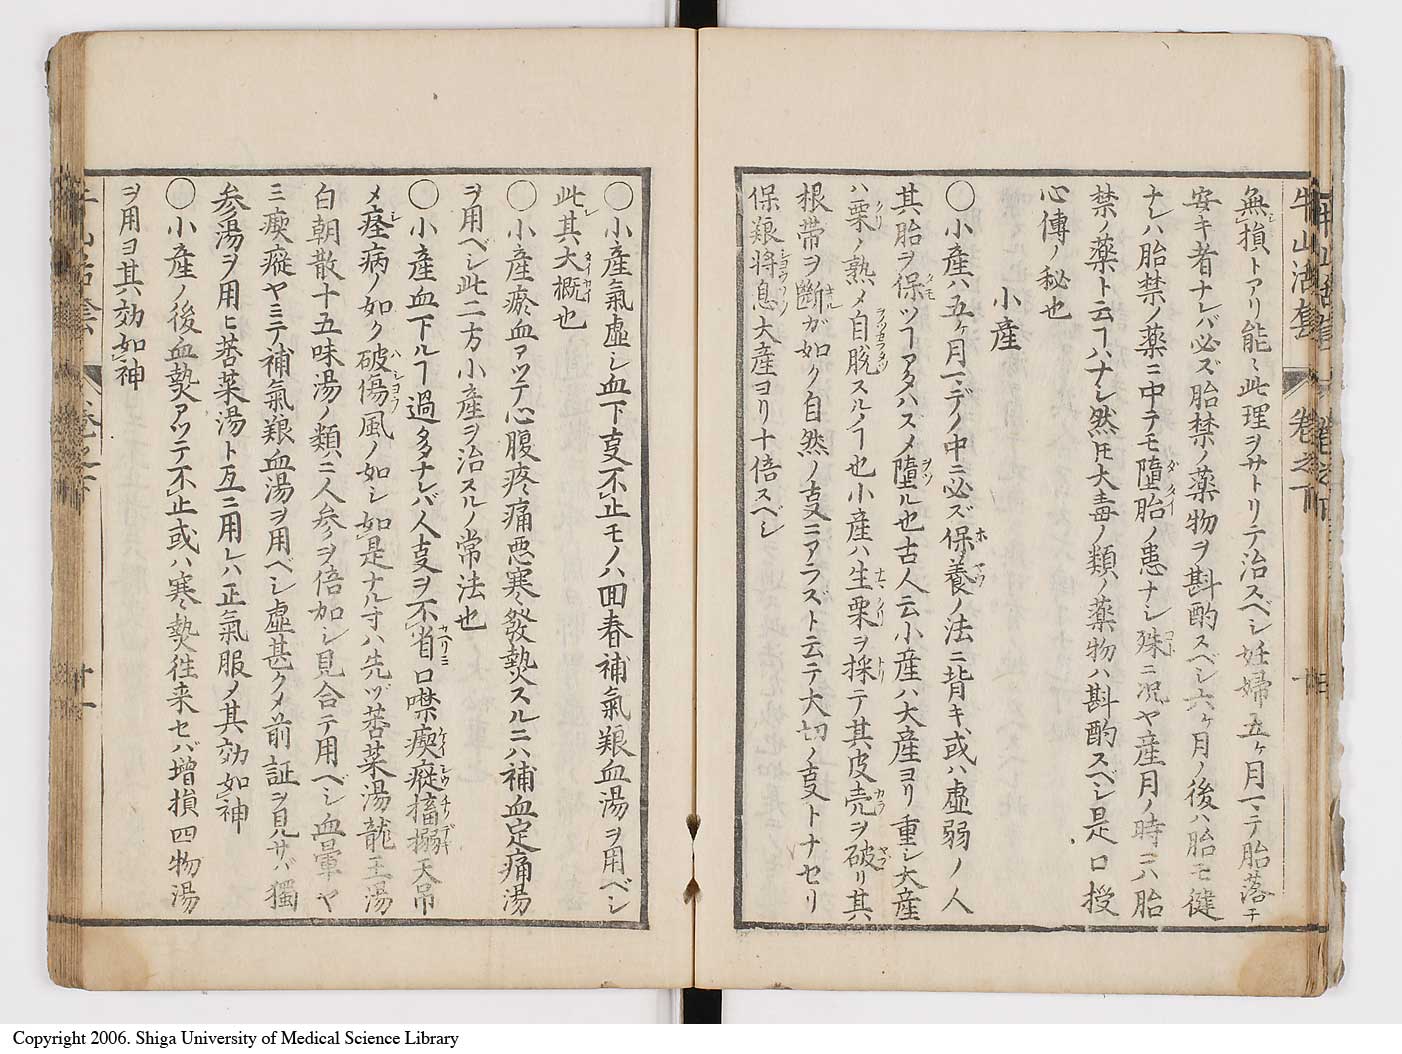 牛山活套 卷之下
無損トアリ能ミ此理ヲサトリテ治スベシ妊婦五ケ月ニテ胎落チ
安キ者ナレバ必ズ胎禁ノ薬物ヲ斟酌スベシ六ケ月ノ後ハ胎モ健
ナレハ胎禁ノ薬ニ中テモ墮胎ノ患ナシ殊ニ况ヤ産月ノ時ニハ胎
禁ノ薬ト云ヿハナシ然𪜈大毒ノ類ノ薬物ハ斟酌スベシ是口授
心傳ノ秘也
小産
〇小産ハ五ケ月マデノ中ニ必ズ保養ノ法ニ背キ或ハ虚弱ノ人
其胎ヲ保ツヿアタハズメ墮ル也古人云小産ハ大産ヨリ重シ大産
ハ栗ノ熟メ自脱スルノヿ也小産ハ生栗ヲ採テ其皮売ヲ破リ其
根帯ヲ斷ガ如ク自然ノ叓ニアラズト云テ大切ノ叓トナセリ
保艱將息大産ヨリ十倍スベシ
〇小産氣虚シ血下叓不止モノハ回春補氣艱血湯ヲ用ベシ
此レ其大概也
〇小産瘀血アツテ心腹疼痛悪寒發熱スルニハ補血定痛湯
ヲ用ベシ此二方小産ヲ治スルノ常法也
〇小産血下ルヿ過多ナレバ人叓ヲ不省口噤瘈瘲搐搦天吊
メ痙病ノ如ク破傷風ノ如シ如是ナル寸ハ先ヅ苔菜湯龍王湯
白朝散十五味湯ノ類ニ人参ヲ倍加シ見合テ用ベシ血暈ヤ
ミ瘈瘲ヤミテ補氣艱血湯ヲ用ベシ虚甚クメ前証ヲ見サバ獨
参湯ヲ用ヒ苔菜湯ト互ニ用レハ正氣服メ其効如神
〇小産ノ後血熱アツテ不止或ハ寒熱往来セバ増損四物湯
ヲ用ヨ其効如神
Copyright 2006. Shiga University of Medical Science Library